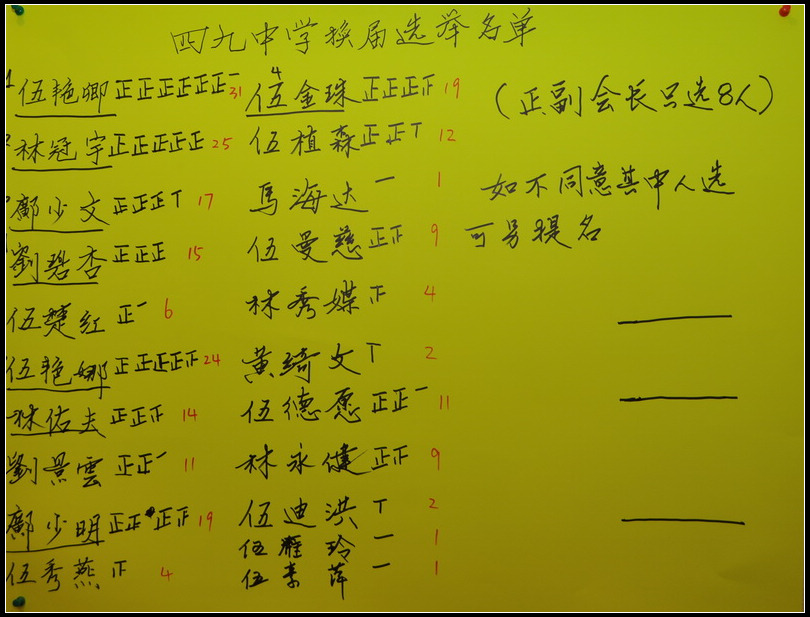 四九中学换届选举名单
1 伍艳卿 正正正正正正一 31
2 林冠宇 正正正正正 25
鄺少文 正正正丅 17
劉碧杏 正正正 15
伍楚红 正一 6
伍艳娜 正正正正正 24
林佑夫 正正正 14
劉景雲 正正一 11
鄺少明 正正正正 19
伍秀燕 正 4
4
伍金珠 正正正正 19
伍植森 正正丅 12
馬海达 一 1
伍曼慈 正正 9
林秀媒 正 4
黄绮文 丅 2
伍德愿 正正一 11
林永健 正正 9
伍迪洪 丅 2
伍雁玲 一 1
伍素萍 一 1
(正副会长只选8人)
如不同意其中人选
可另提名